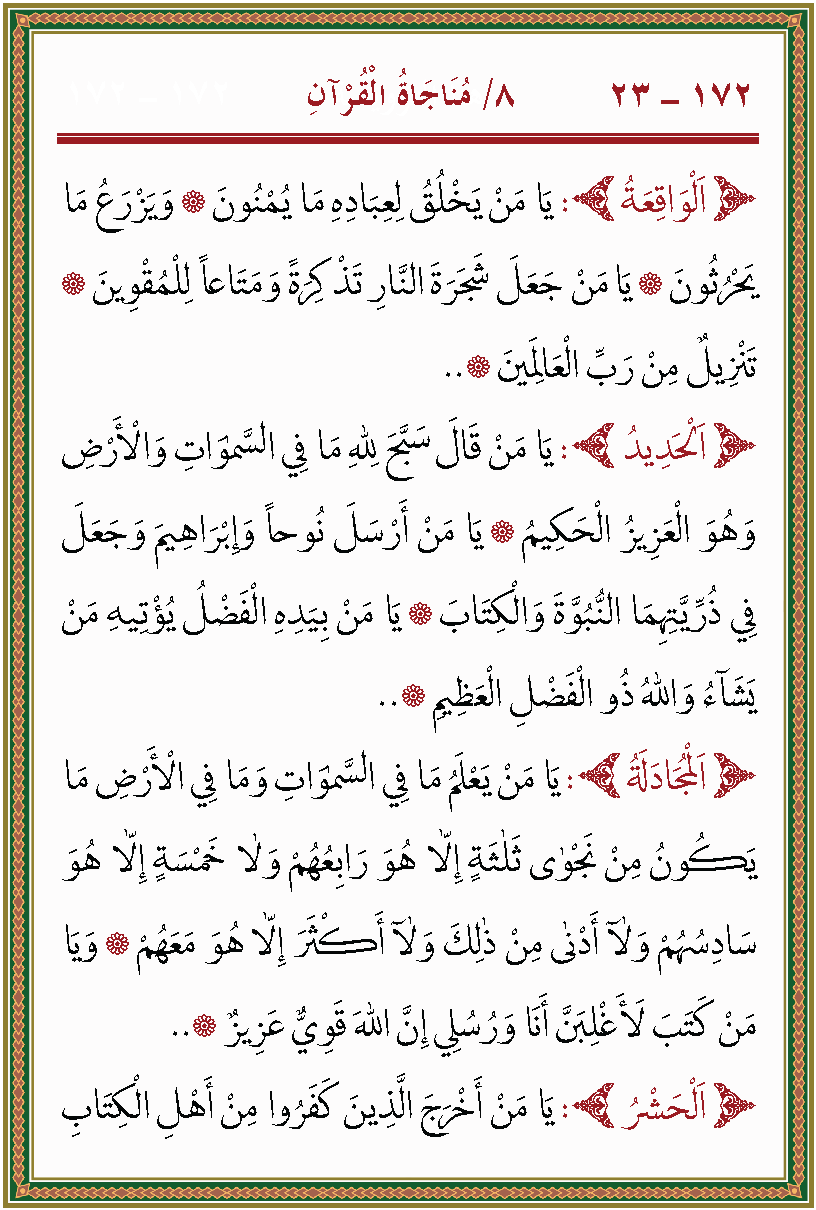 ١٧٢ ـ ٢٣ ٨/ مُنَاجَاةُ الْقُرْآنِ
﴿ اَلْوَاقِعَةُ ﴾: يَا مَنْ يَخْلُقُ لِعِبَادِهِ مَا يُمْنُونَ ۞ وَيَزْرَعُ مَا
يَحْرُثُونَ ۞ يَا مَنْ جَعَلَ شَجَرَةَ النَّارِ تَذْكِرَةً وَمَتَاعاً لِلْمُقْوِينَ ۞
تَنْزِيلٌ مِنْ رَبِّ الْعَالَمِينَ ۞..
﴿ اَلْحَدِيدُ ﴾: يَا مَنْ قَالَ سَبَّحَ لِلهِ مَا فِي السَّمٰوَاتِ وَالْأَرْضِ
وَهُوَ الْعَزِيزُ الْحَكِيمُ ۞ يَا مَنْ أَرْسَلَ نُوحاً وَإِبْرَاهِيمَ وَجَعَلَ
فِي ذُرِّيَّتِهِمَا النُّبُوَّةَ وَالْكِتَابَ ۞ يَا مَنْ بِيَدِهِ الْفَضْلُ يُؤْتِيهِ مَنْ
يَشَآءُ وَاللهُ ذُو الْفَضْلِ الْعَظِيمِ ۞..
﴿ اَلْمُجَادَلَةُ ﴾: يَا مَنْ يَعْلَمُ مَا فِي السَّمٰوَاتِ وَمَا فِي الْأَرْضِ مَا
يَكُونُ مِنْ نَجْوٰى ثَلٰثَةٍ إِلَّا هُوَ رَابِعُهُمْ وَلَا خَمْسَةٍ إِلَّا هُوَ
سَادِسُهُمْ وَلَآ أَدْنٰى مِنْ ذٰلِكَ وَلَآ أَكْثَرَ إِلَّا هُوَ مَعَهُمْ ۞ وَيَا
مَنْ كَتَبَ لَأَغْلِبَنَّ أَنَا وَرُسُلِي إِنَّ اللهَ قَوِيٌّ عَزِيزٌ ۞..
﴿ اَلْحَشْرُ ﴾: يَا مَنْ أَخْرَجَ الَّذِينَ كَفَرُوا مِنْ أَهْلِ الْكِتَابِ